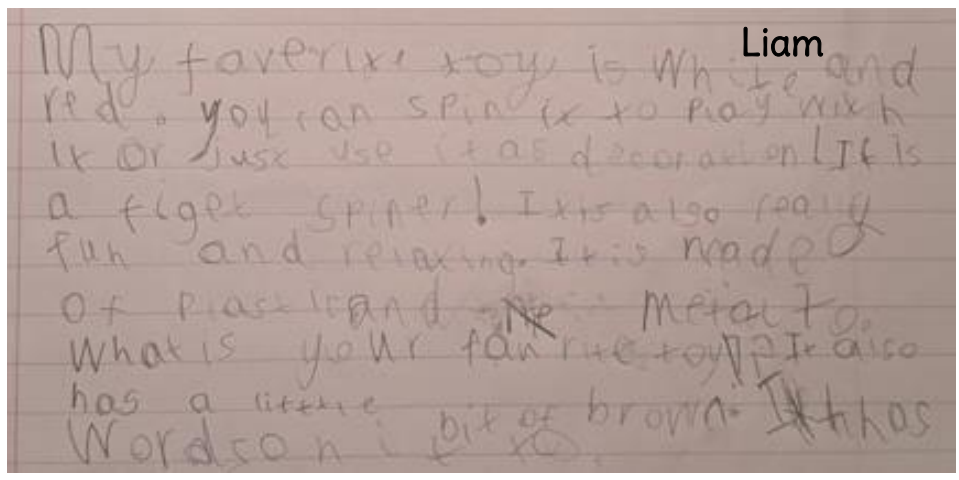 Liam
My faverite toy is white and
red. you can spin it to play with
it or Just use it as decoration! It is
a figet spiner! It is also realy
fun and relaxing. It is made
of plastic and metal to.
What is your favrite toy? It also
has a little bit of brown. It has
Words on it to.